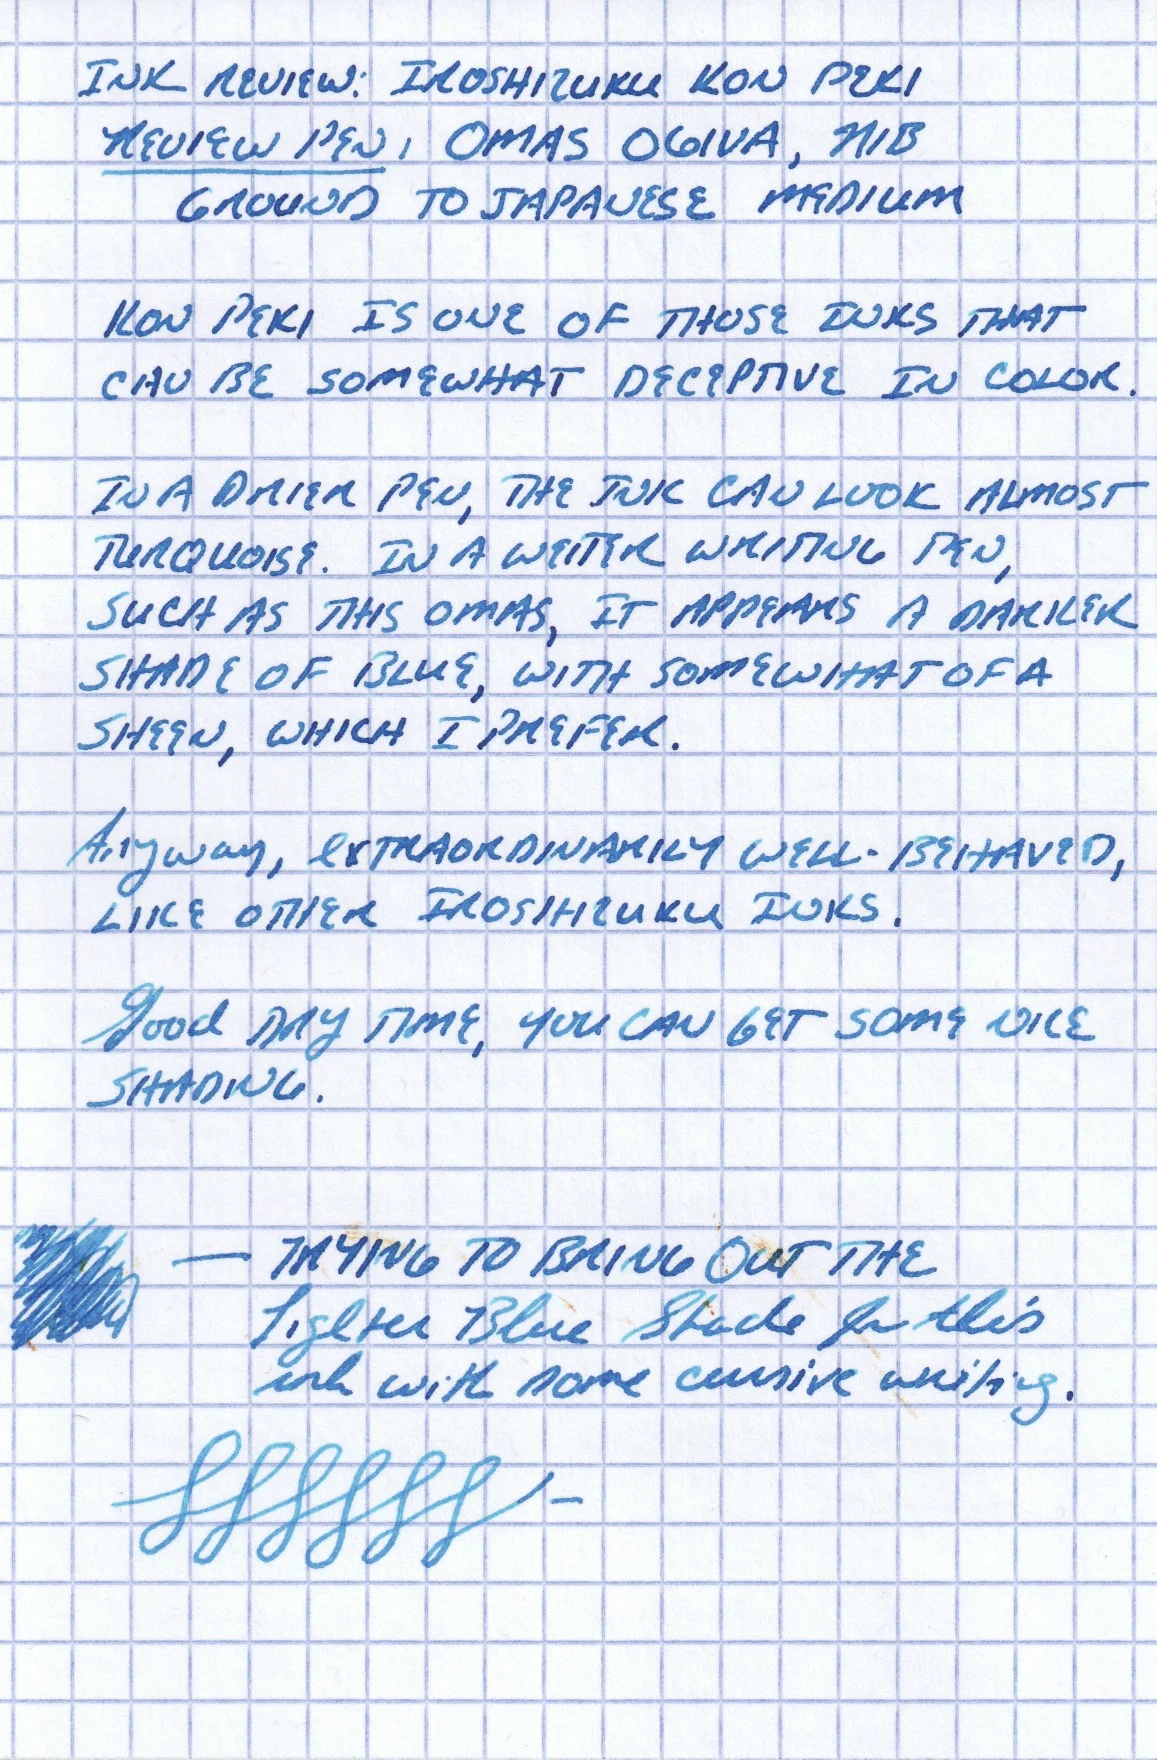 INK REVIEW: IROSHIZUKU KON PEKI
REVIEW PEN: OMAS OGIVA, NIB
GROUND TO JAPANESE MEDIUM
KON PEKI IS ONE OF THOSE INKS THAT
CAN BE SOMEWHAT DECEPTIVE IN COLOR.
IN A DRIER PEN, THE INK CAN LOOK ALMOST
TURQUOISE. IN A WETTER WRITING PEN,
SUCH AS THIS OMAS, IT APPEARS A DARKER
SHADE OF BLUE, WITH SOMEWHAT OF A
SHEEN, WHICH I PREFER.
Anyway, EXTRAORDINARILY WELL-BEHAVED,
LIKE OTHER IROSHIZUKU INKS.
Good DRY TIME, YOU CAN GET SOME NICE
SHADING.
— TRYING TO BRING OUT THE
lighter Blue Shade for this
ink with some cursive writing.